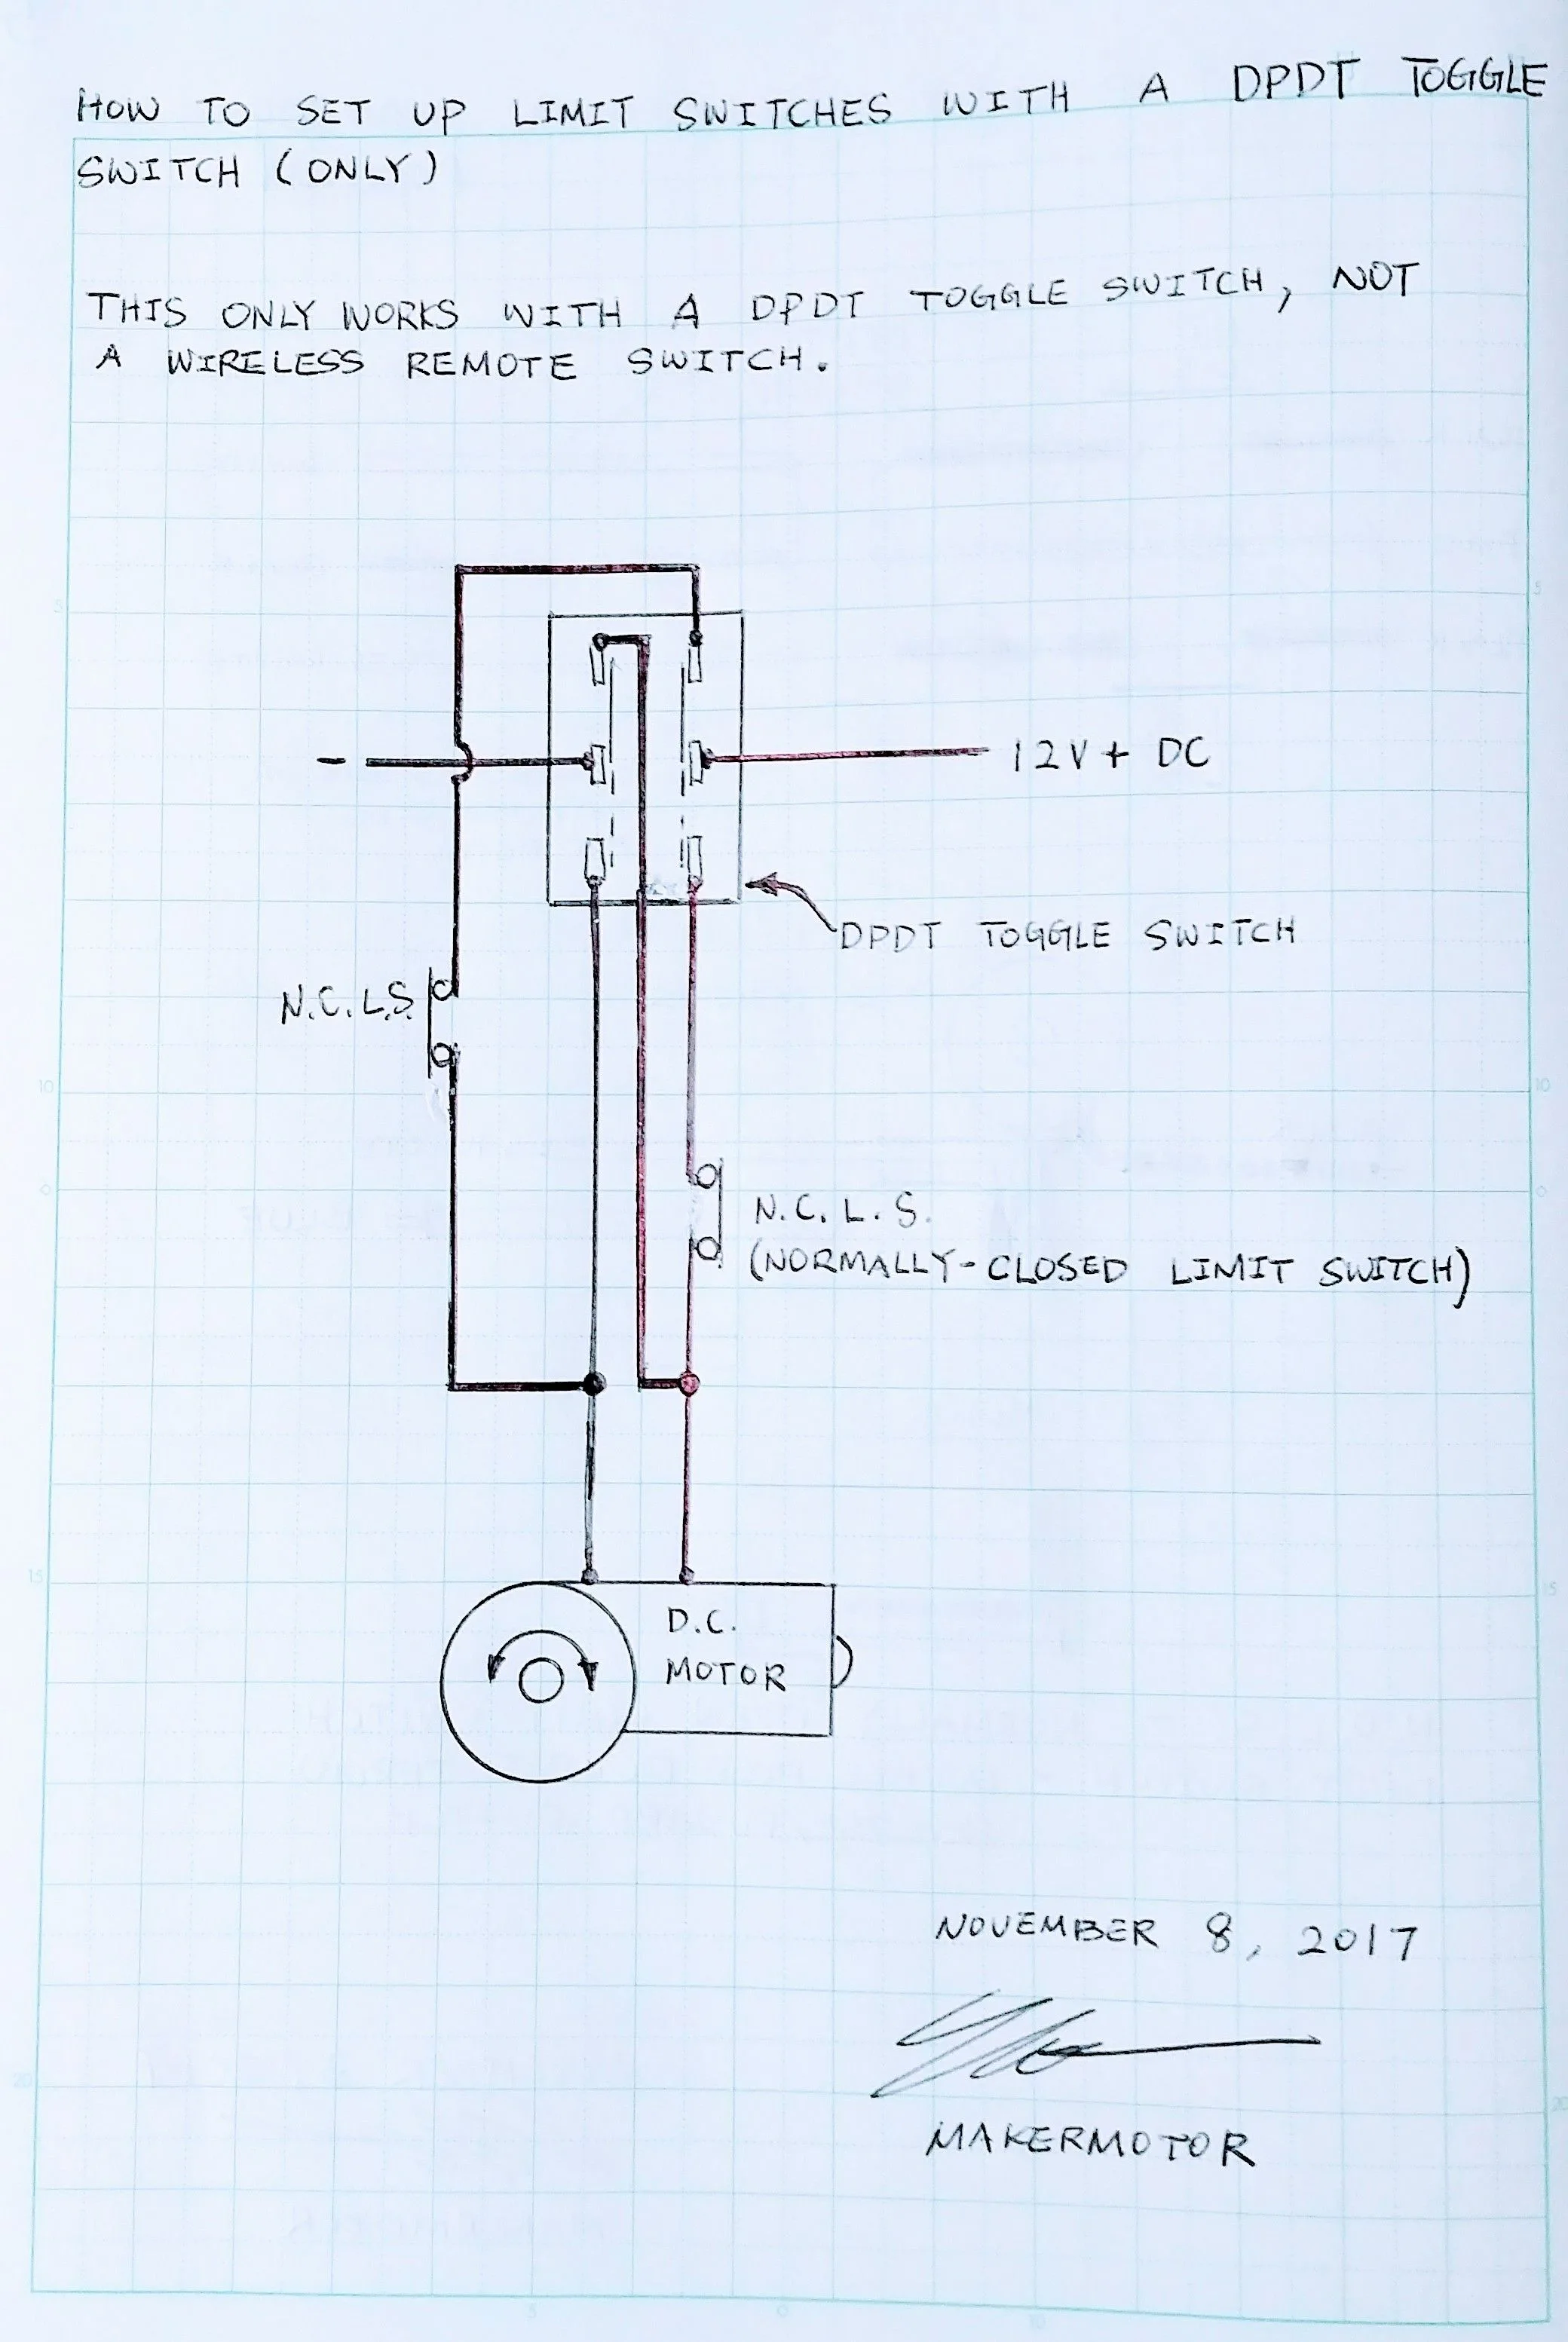 HOW TO SET UP LIMIT SWITCHES WITH A DPDT TOGGLE
SWITCH (ONLY)
THIS ONLY WORKS WITH A DPDT TOGGLE SWITCH, NOT
A WIRELESS REMOTE SWITCH.
- 12V + DC
DPDT TOGGLE SWITCH
N.C.L.S.
N.C.L.S.
(NORMALLY-CLOSED LIMIT SWITCH)
D.C.
MOTOR
NOVEMBER 8, 2017
MAKERMOTOR